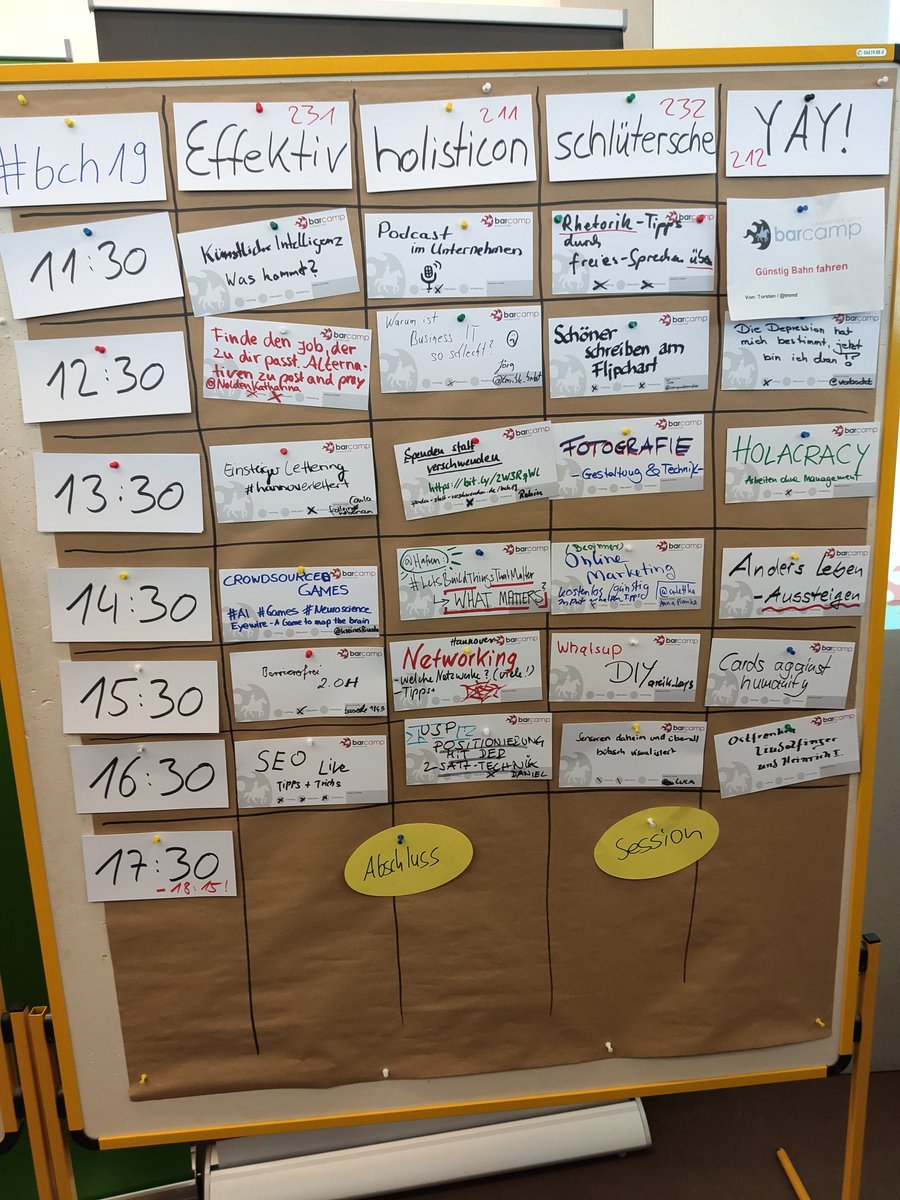 #bch19
231
Effektiv
211
holisticon
232
schlütersche
YAY!
212
11:30
barcamp
Künstliche Intelligenz
Was kommt?
barcamp
Podcast
im Unternehmen
barcamp
Rhetorik-Tipps
durch
freies-Sprechen üben
barcamp
Günstig Bahn fahren
Von: Torsten / @tmmd
12:30
barcamp
Finde den Job, der
zu dir passt. Alterna-
tiven zu post and pray
@NoldenKatharina
barcamp
Warum ist
Business IT
so schlecht?
Jörg
barcamp
Schöner
schreiben am
Flipchart
Die Depression hat
mich bestimmt, jetzt
bin ich dran!?
13:30
barcamp
Einsteiger Lettering
#hannoverlettert
barcamp
Spenden statt
verschwenden
barcamp
FOTOGRAFIE
-Gestaltung & Technik-
barcamp
HOLACRACY
Arbeiten ohne Management
14:30
barcamp
CROWDSOURCED
GAMES
#AI #Games #Neuroscience
Eyewire - A Game to map the brain
barcamp
@Hafven:
#LetsBuildThingsThatMatter
WHAT MATTERS?
barcamp
Beginner
Online
Marketing
kostenlos/günstig
barcamp
Anders Leben
-Aussteigen
15:30
barcamp
Barrierefrei
2.0H
barcamp
Hannover
Networking
-Welche Netzwerke? (viele!)
-Tipps
barcamp
Whatsup
DIY
barcamp
Cards against
humanity
16:30
barcamp
SEO Live
Tipps + Tricks
barcamp
USP
POSITIONIERUNG
MIT DER
2-SATZ-TECHNIK
DANIEL
barcamp
Sensoren daheim und überall
hübsch visualisiert
LUCA
barcamp
Ostfranken
Liudolfinger
und Heinrich I.
17:30
- 18:15!
Abschluss
Session